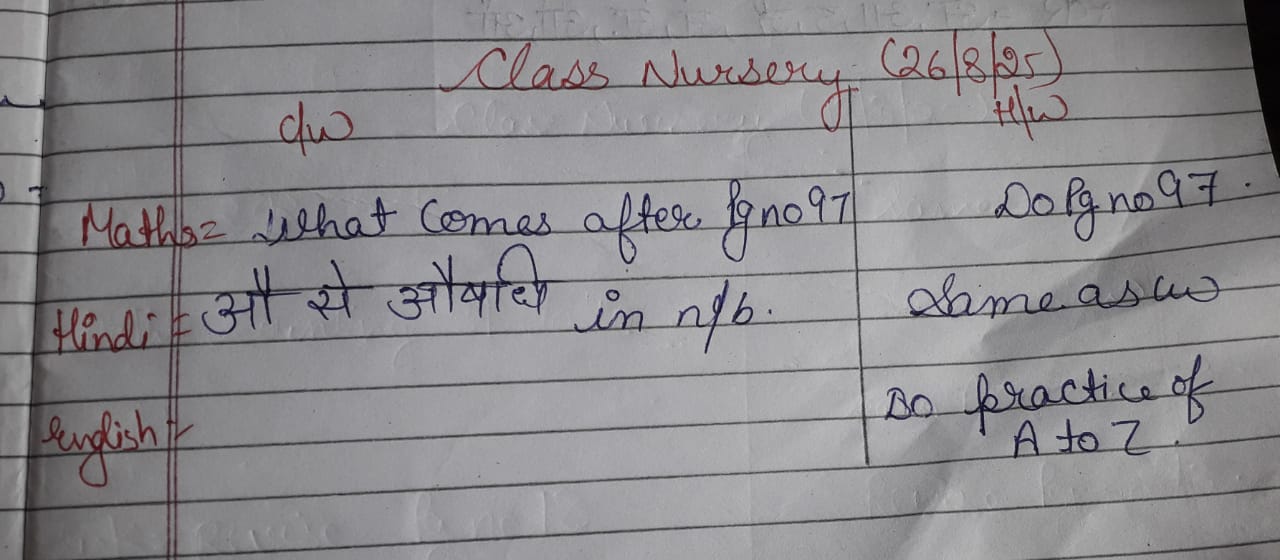 Class Nursery (26/8/25)
c/w H/w
Maths= What Comes after Pg no 97 Do Pg no 97.
Hindi = औ से औषधि in n/b. Same as cw
English:- Do practice of
A to Z.